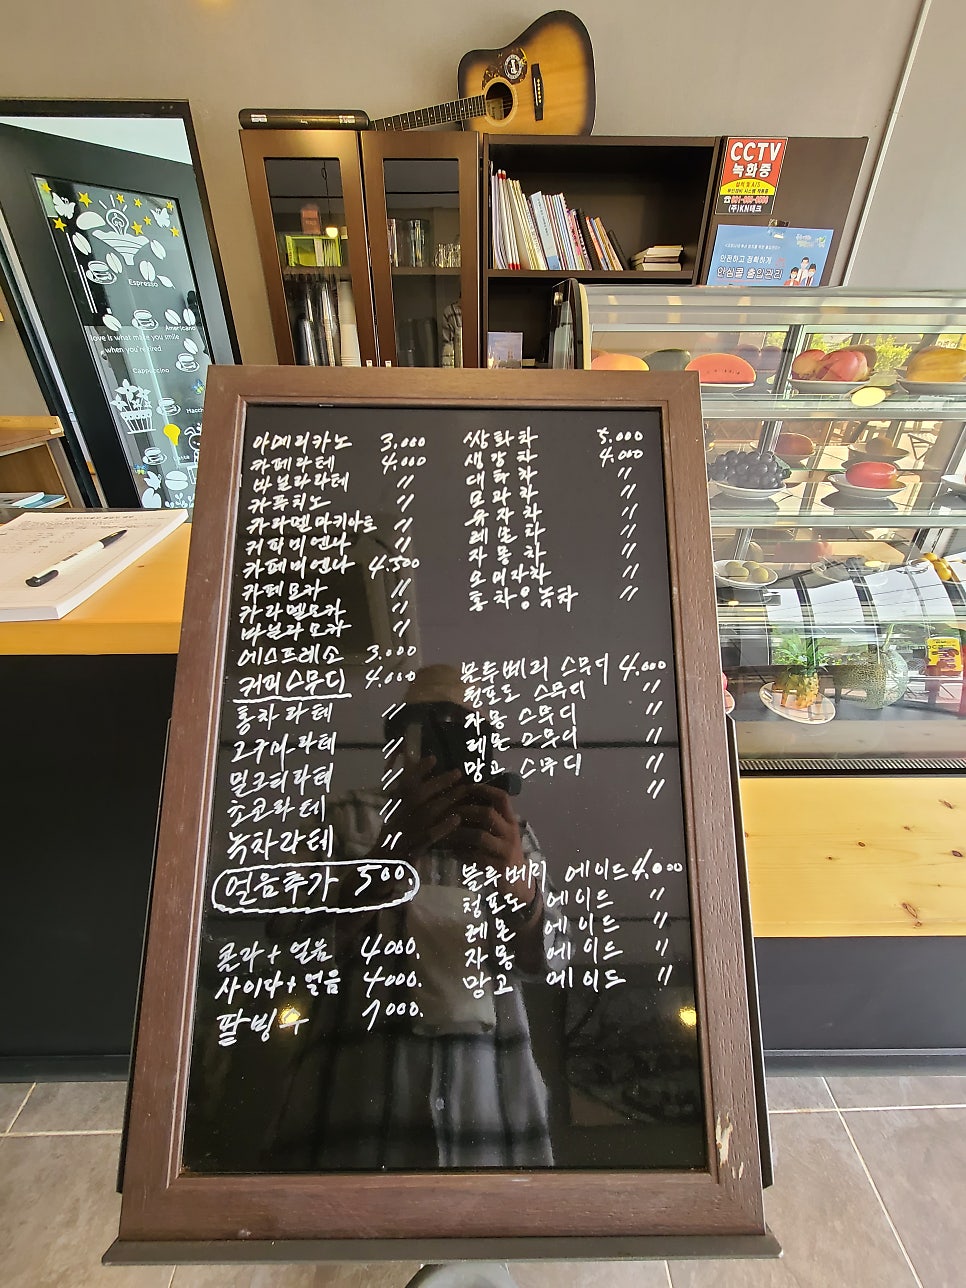 CCTV
녹화중
(주)KN테크
안전하고 정확하게
안심콜 출입관리
Espresso
Americano
love is what make you smile
when you re tired
Cappuccino
아메리카노 3.000
카페라테 4.000
바닐라라테 〃
카푸치노 〃
카라멜마키아토 〃
커피비엔나 〃
카페비엔나 4.500
카페모카 〃
카라멜모카 〃
바닐라모카 〃
에스프레소 3.000
커피스무디 4.000
홍차라테 〃
고구마라테 〃
밀크티라테 〃
초코라테 〃
녹차라테 〃
얼음추가 500.
콜라+얼음 4000.
사이다+얼음 4000.
팥빙수 7000.
쌍화차 5.000
생강차 4.000
대추차 〃
모과차 〃
유자차 〃
레몬차 〃
자몽차 〃
오미자차 〃
홍차앙녹차 〃
블루베리 스무디 4.000
청포도 스무디 〃
자몽 스무디 〃
레몬 스무디 〃
망고 스무디 〃
〃
블루베리 에이드 4.000
청포도 에이드 〃
레몬 에이드 〃
자몽 에이드 〃
망고 에이드 〃